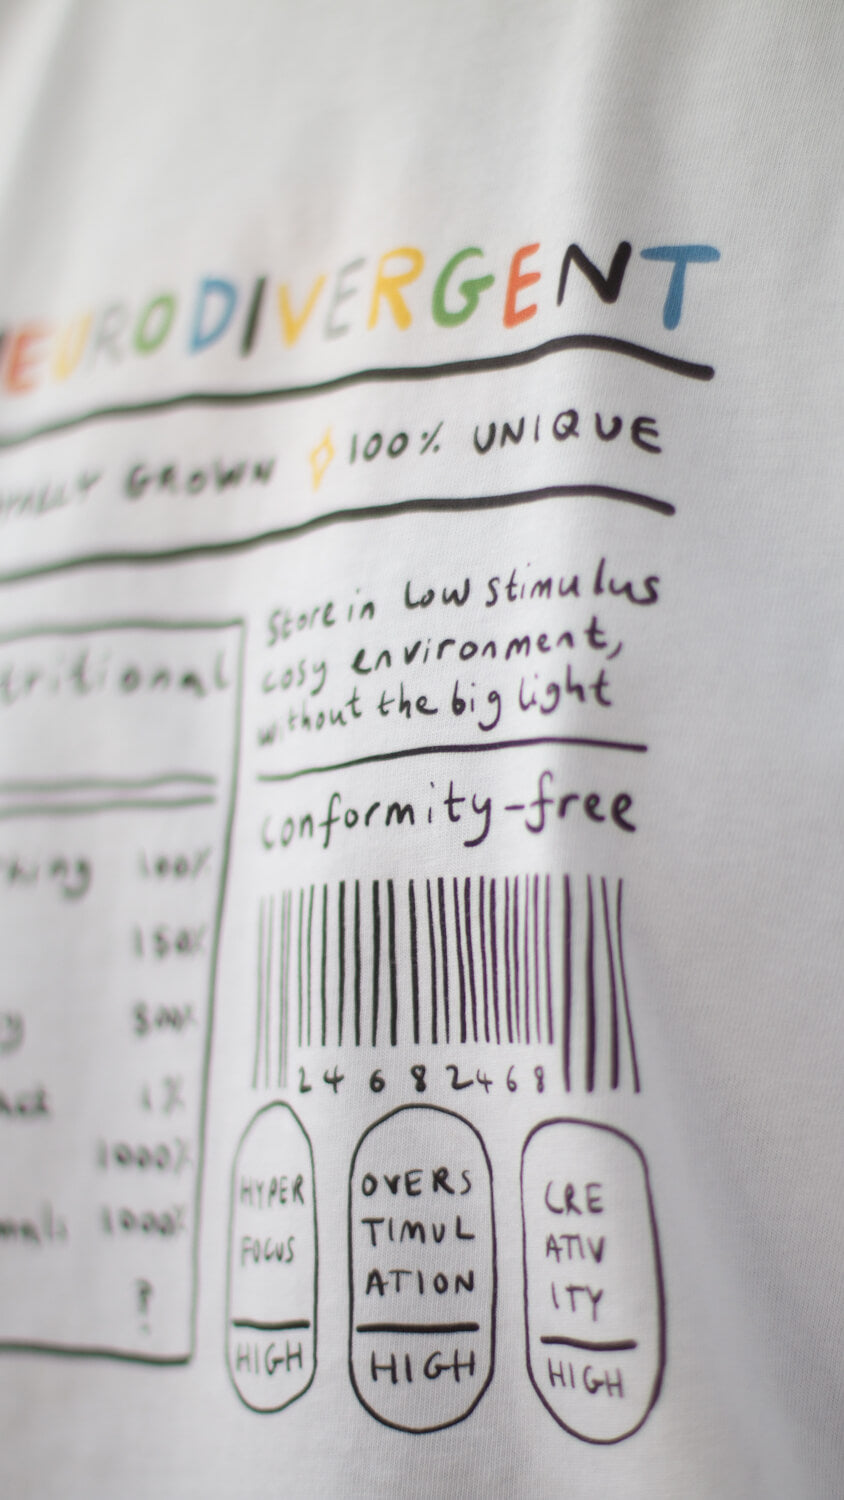 NEURODIVERGENT
GROWN 100% UNIQUE
Store in low stimulus
cosy environment,
without the big light
conformity-free
2 4 6 8 2 4 6 8
HYPER
FOCUS
HIGH
OVERS
TIMUL
ATION
HIGH
CRE
ATIV
ITY
HIGH
tritional
100%
150%
1%
1000%
1000%
?